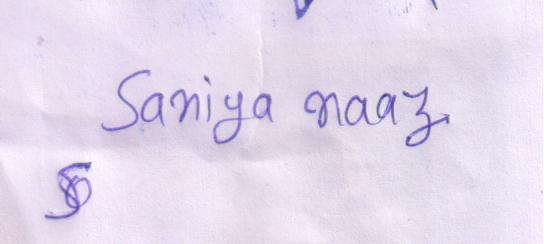 Saniya naaz